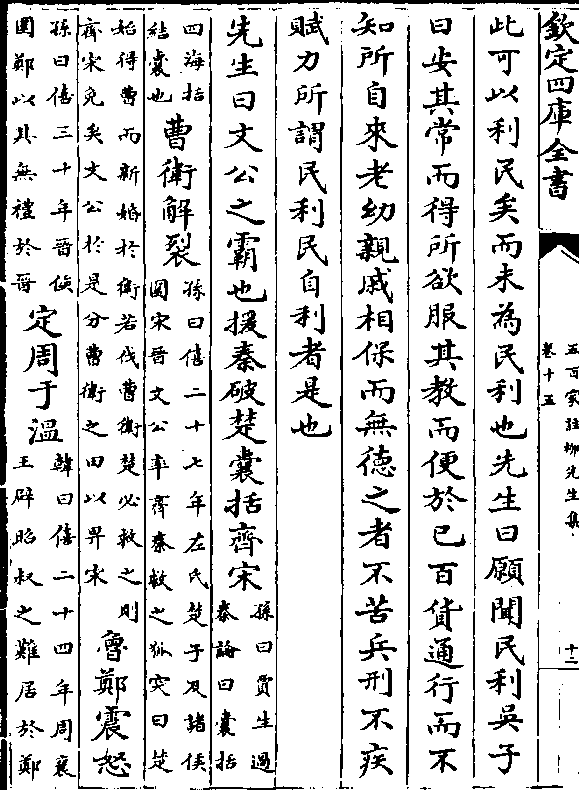 欽定四庫全書
五百家註柳先生集
卷十五
十二
此可以利民矣而未為民利也先生曰願聞民利吳子
曰安其常而得所欲服其教而便於已百貨通行而不
知所自來老幼親戚相保而無德之者不苦兵刑不疾
賦力所謂民利民自利者是也
先生曰文公之霸也援秦破楚囊括齊宋孫曰賈生過秦論曰囊括
四海括結囊也曹衛解裂孫曰僖二十七年左氏楚子及諸侯圍宋晉文公率齊秦救之狐突曰楚
始得曹而新婚於衛若伐曹衛楚必救之則齊宋免矣文公於是分曹衛之田以畀宋魯鄭震恐
孫曰僖三十年晉侯圍鄭以其無禮於晉定周于溫韓曰僖二十四年周襄王辟昭叔之難居於鄭